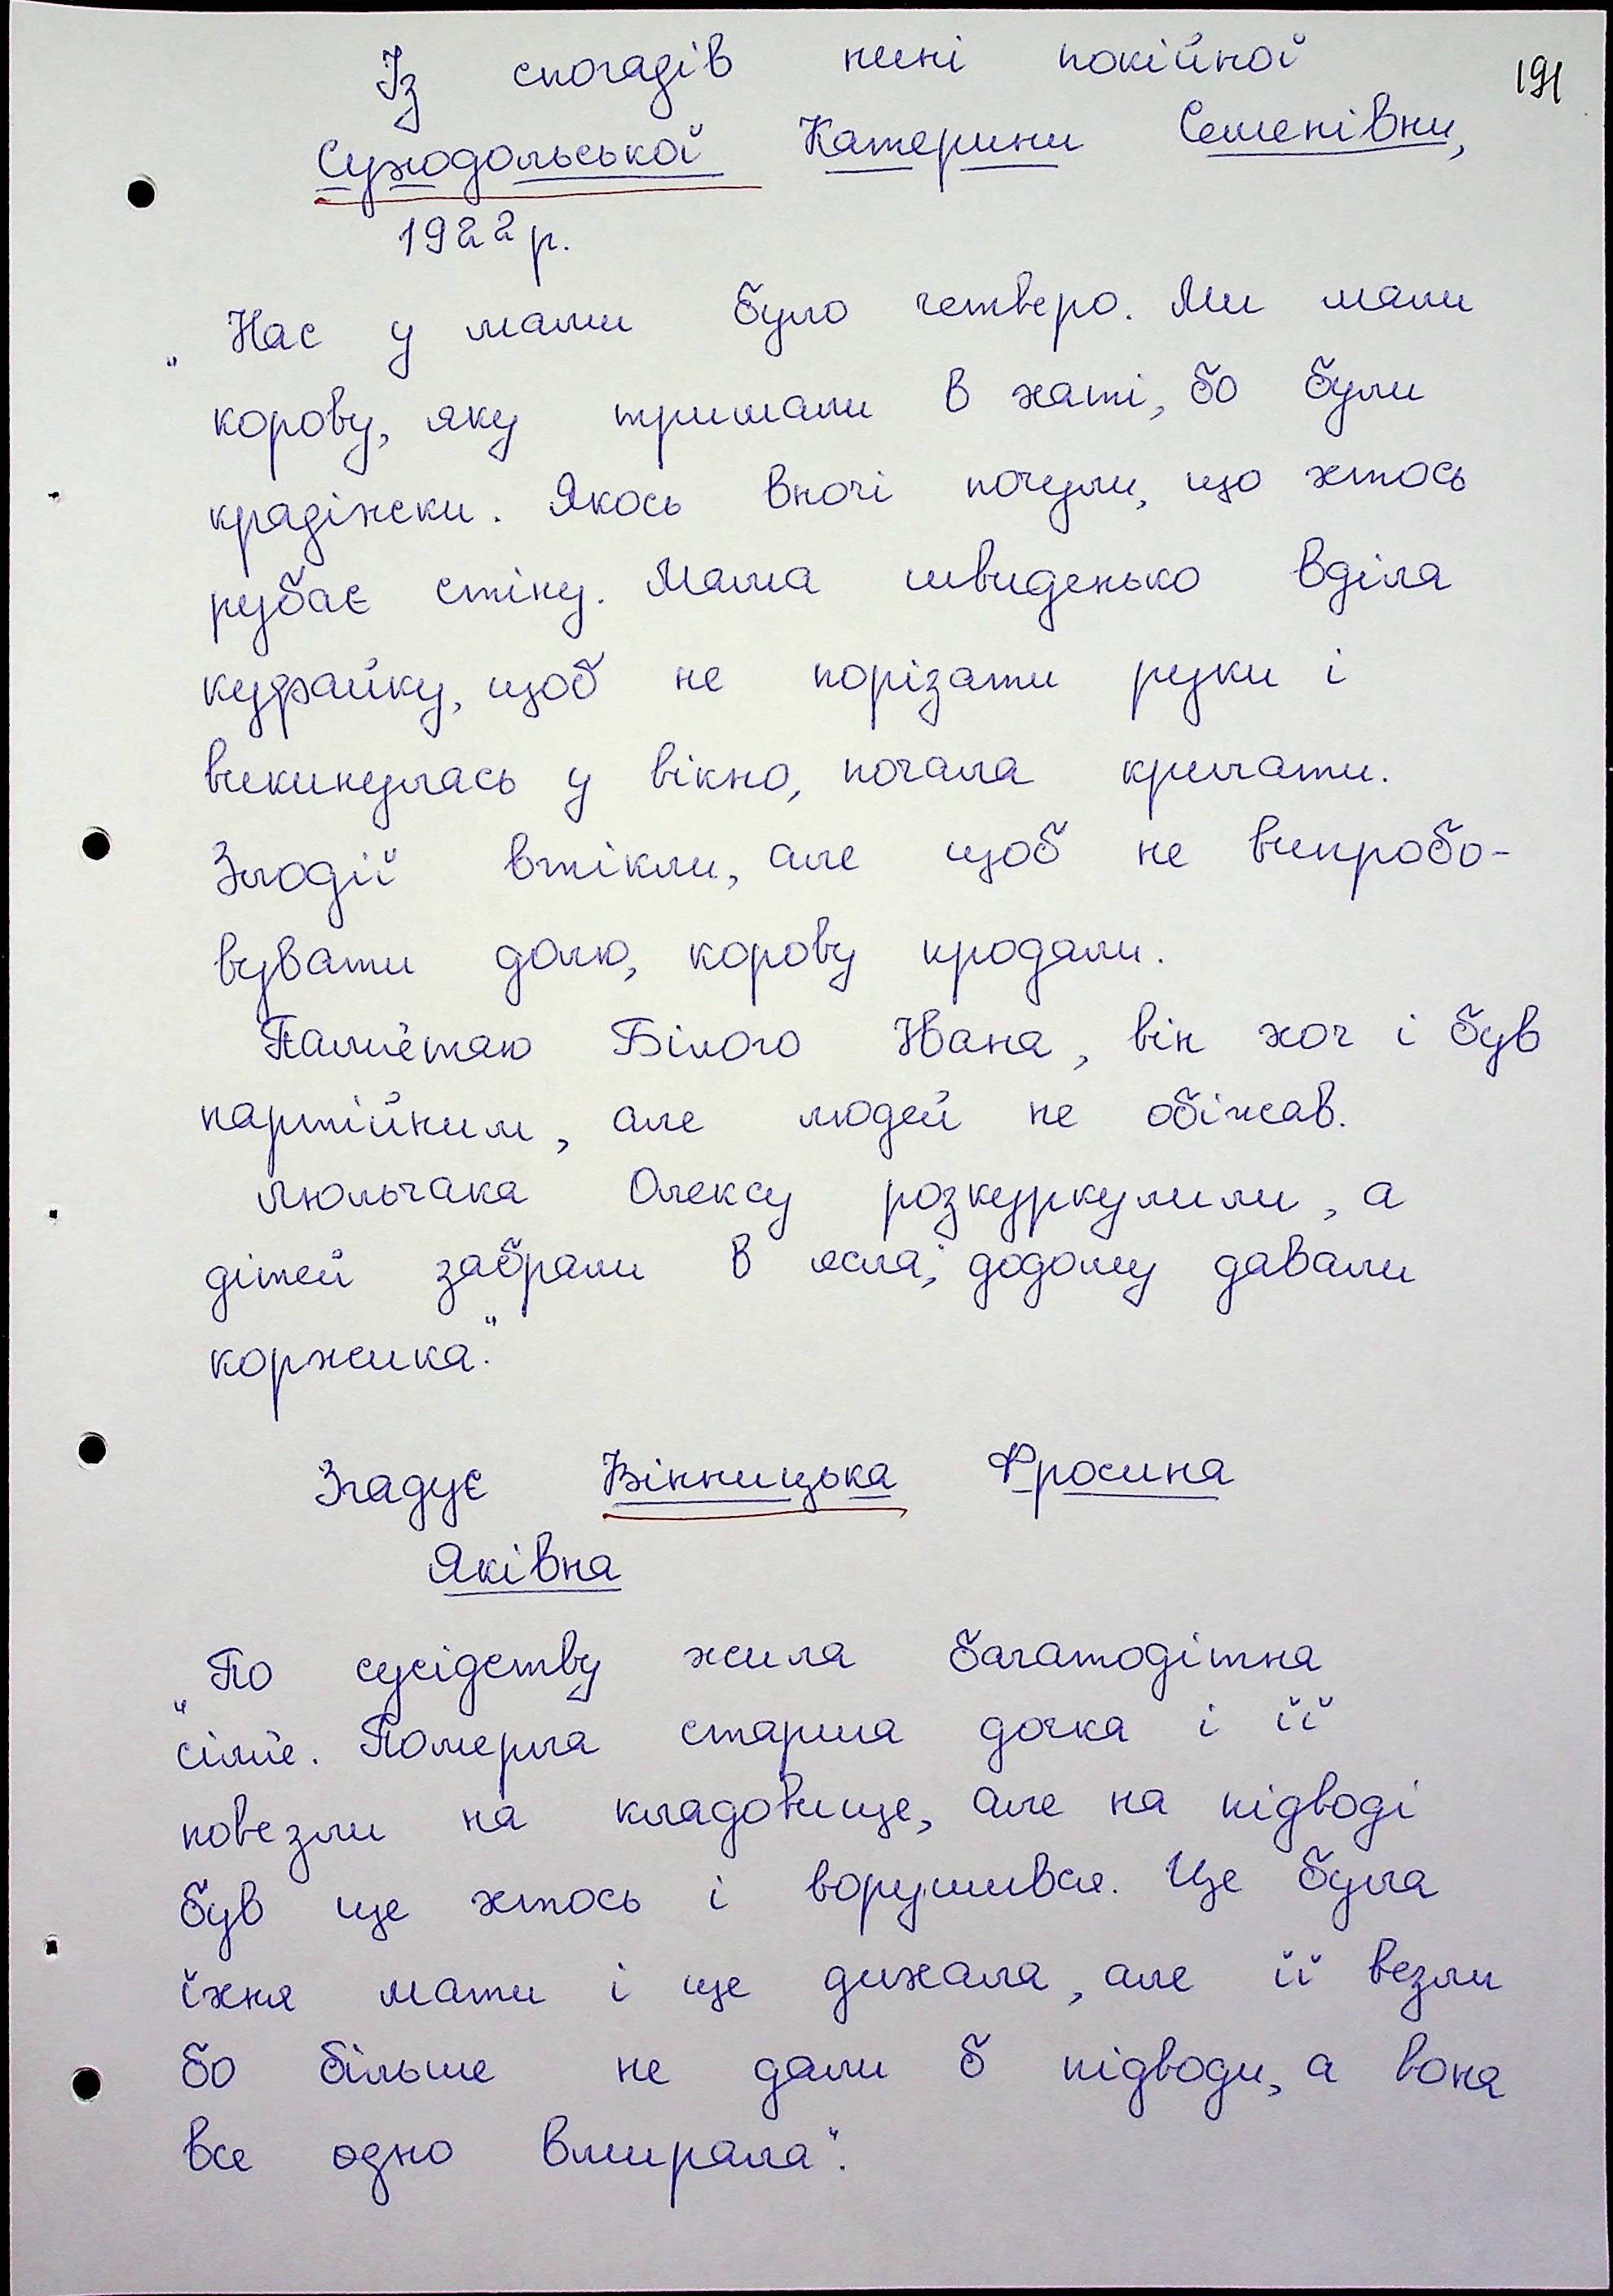 Із спогадів нині покійної
191
Суходольської Катерини Семенівни,
1922 р.
„Нас у мами було четверо. Ми мали
корову, яку тримали в хаті, бо були
крадіжки. Якось вночі почули, що хтось
рубає стіну. Мама швиденько вділа
куфайку, щоб не порізати руки і
викинулась у вікно, почала кричати.
Злодії втікли, але щоб не випробо-
вувати долю, корову продали.
Пам'ятаю Білого Івана, він хоч і був
партійним, але людей не обіжав.
Люльчака Олексу розкуркулили, а
дітей забрали в ясла, додому давали
коржика."
Згадує Вінницька Фросина
Яківна
„По сусідству жила багатодітна
сім'я. Померла старша дочка і її
повезли на кладовище, але на підводі
був ще хтось і ворушився. Це була
їхня мати і ще дихала, але її везли
бо більше не дали б підводи, а вона
все одно вмирала".